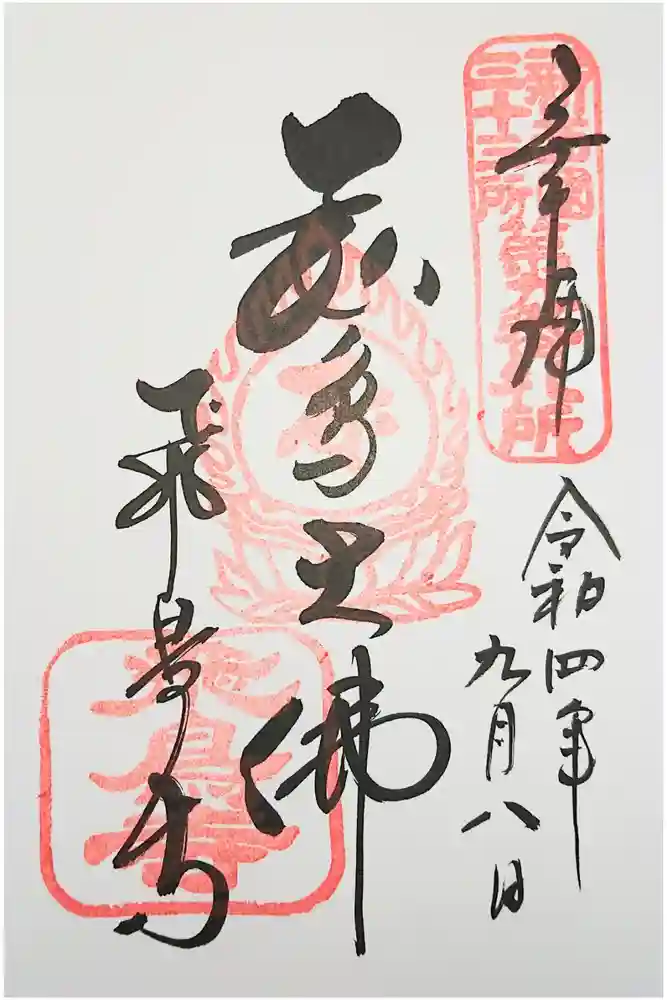 奉拝
新西国
三十三所
第九番札所
令和四年
九月八日
飛鳥大佛
飛鳥寺
飛鳥寺